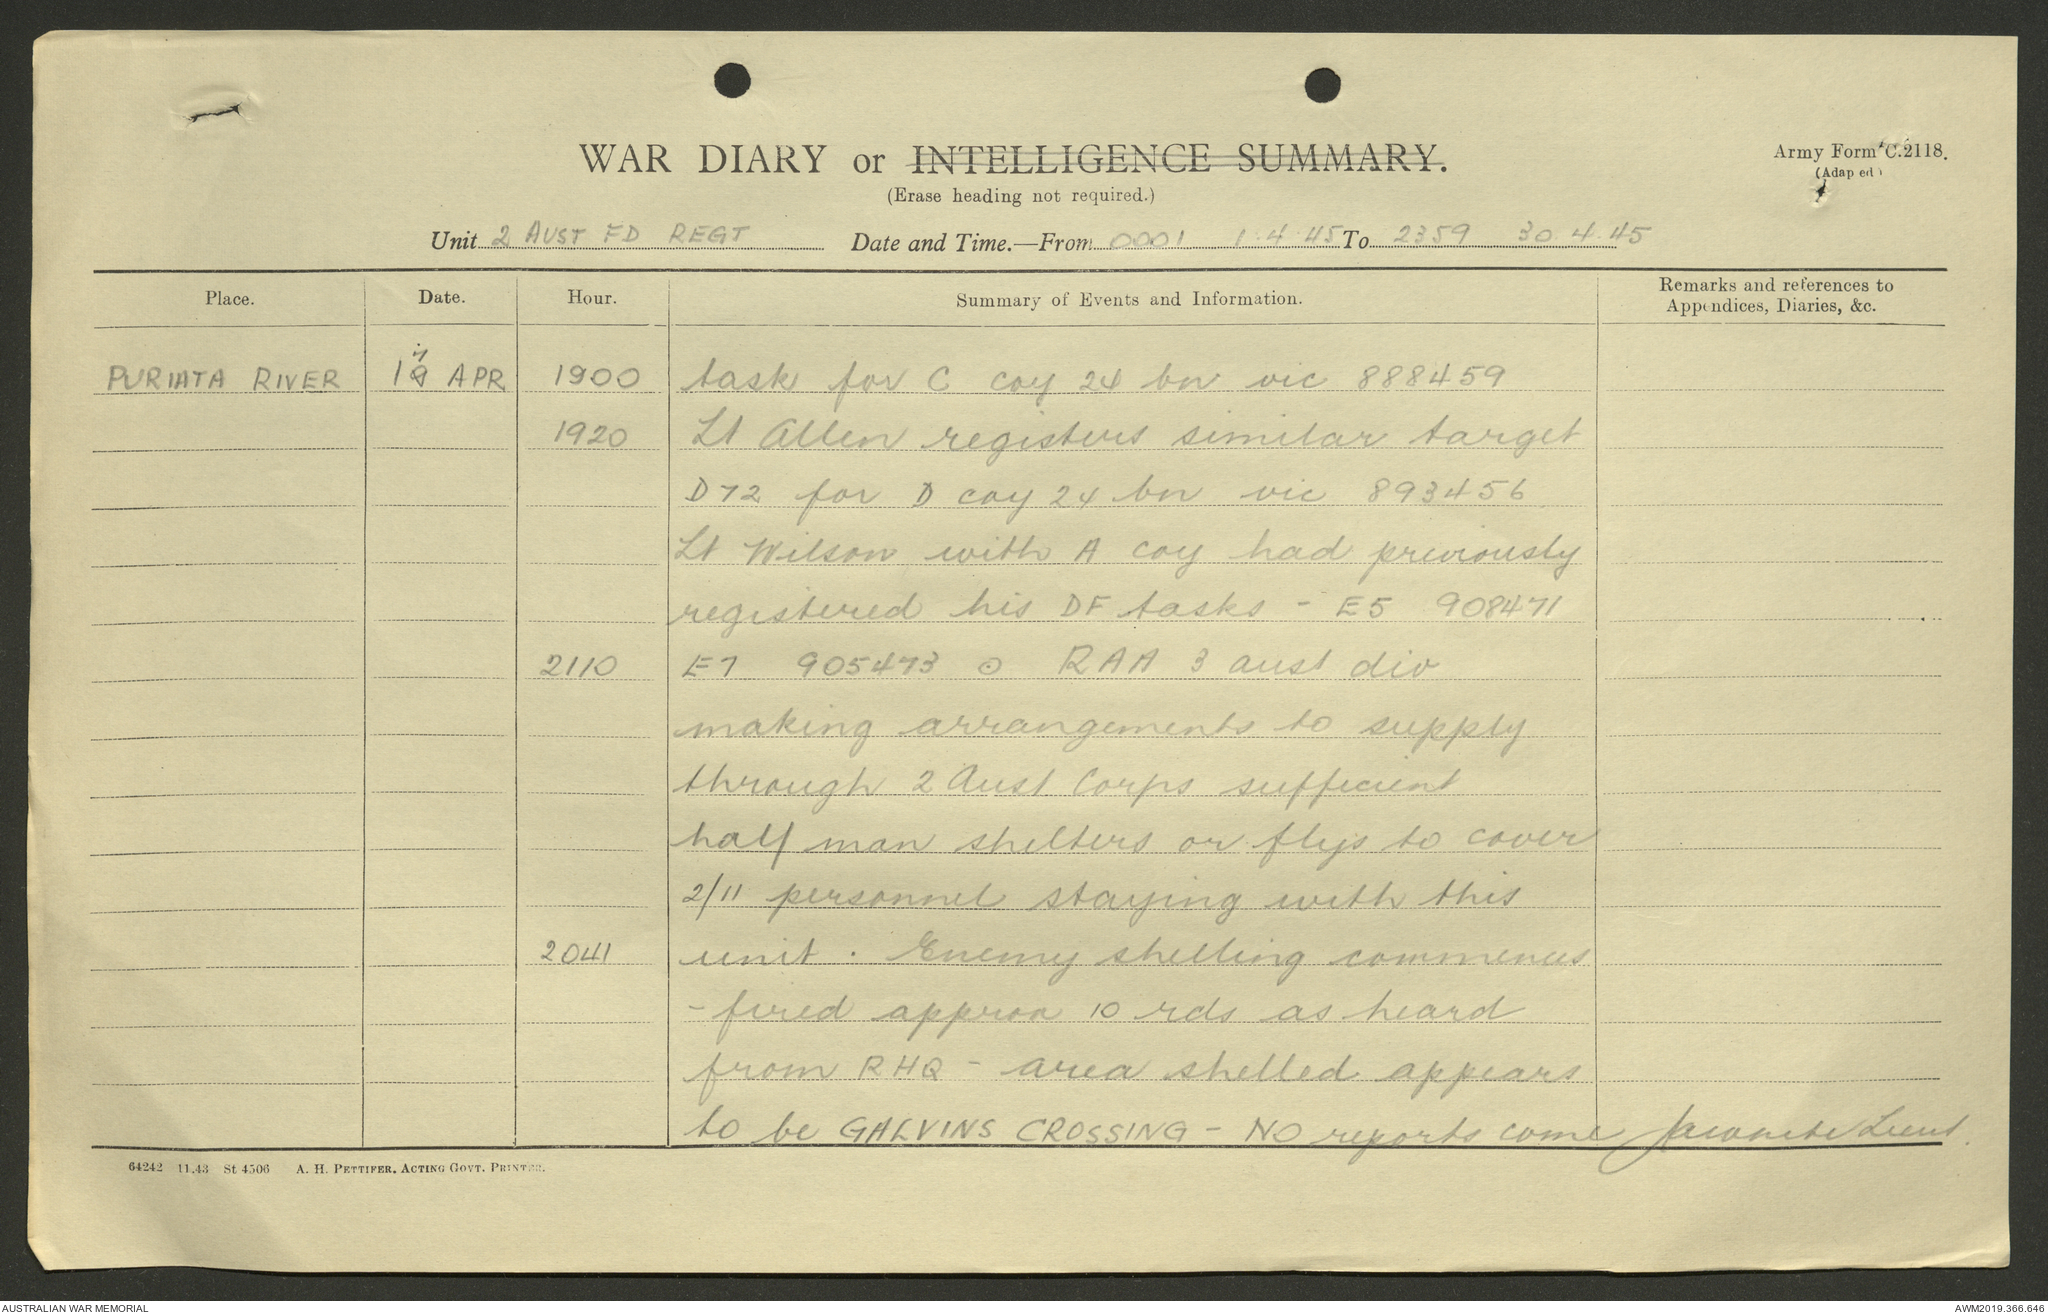 WAR DIARY or INTELLIGENCE SUMMARY.
Army Form C.2118.
(Erase heading not required.)
(Adap ed)
Unit 2 AUST FD REGT Date and Time.—From 0001 1.4.45 To 2359 30.4.45
Place. Date. Hour. Summary of Events and Information. Remarks and references to
Appendices, Diaries, &c.
PURIATA RIVER 17 APR 1900 task for C coy 24 bn vic 888459
1920 Lt Allen registers similar target
D72 for D coy 24 bn vic 893456
Lt Wilson with A coy had previously
registered his DF tasks - E5 908471
2110 E7 905473 ⊙ RAA 3 aust div
making arrangements to supply
through 2 Aust Corps sufficient
half man shelters or flys to cover
2/11 personnel staying with this
2041 unit. Enemy shelling commences
- fired approx 10 rds as heard
from RHQ - area shelled appears
to be GALVINS CROSSING - NO reports come Lieut.
64242 11.43 St 4506 A. H. PETTIFER, ACTING GOVT. PRINTER.
AUSTRALIAN WAR MEMORIAL
AWM2019.366.646